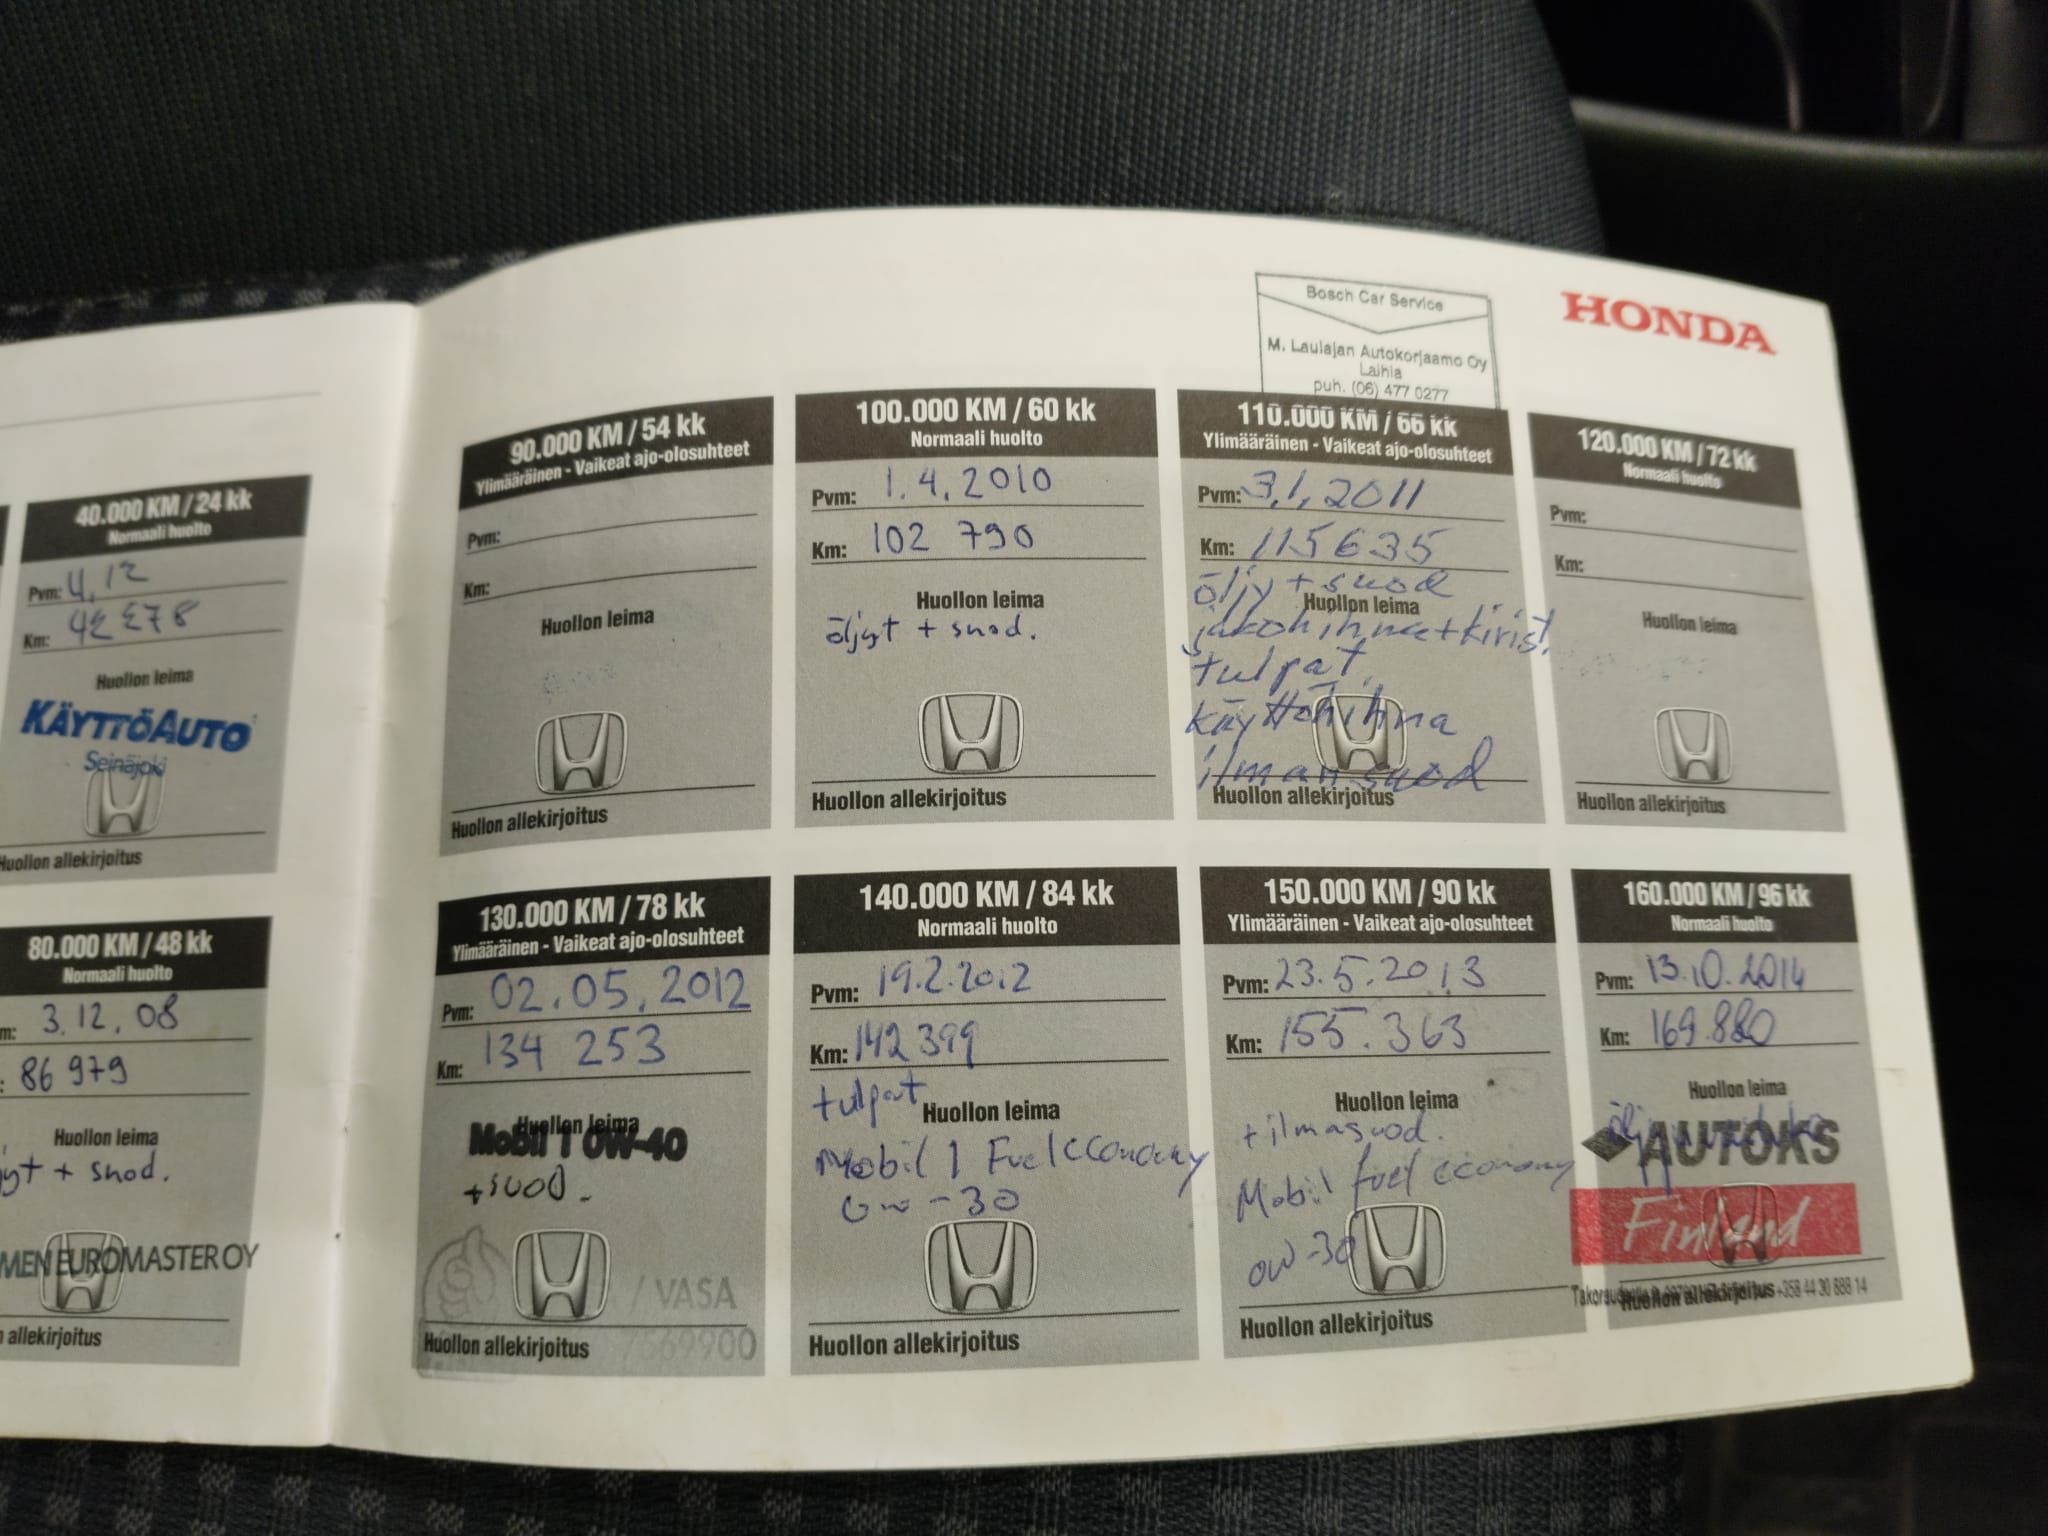 Bosch Car Service
M. Laulajan Autokorjaamo Oy
Laihia
puh. (06) 477 0277
HONDA
40.000 KM / 24 kk
Normaali huolto
Pvm: 4.12
Km: 42 278
Huollon leima
KÄYTTÖAUTO
Seinäjoki
Huollon allekirjoitus
90.000 KM / 54 kk
Ylimääräinen - Vaikeat ajo-olosuhteet
Pvm:
Km:
Huollon leima
Huollon allekirjoitus
100.000 KM / 60 kk
Normaali huolto
Pvm: 1.4.2010
Km: 102 790
Huollon leima
öljyt + suod.
Huollon allekirjoitus
110.000 KM / 66 kk
Ylimääräinen - Vaikeat ajo-olosuhteet
Pvm: 3.1.2011
Km: 115635
öljy + suod
Huollon leima
jakohihna + kirist.
tulpat.
käyttöhihna
ilmansuod
Huollon allekirjoitus
120.000 KM / 72 kk
Normaali huolto
Pvm:
Km:
Huollon leima
Huollon allekirjoitus
80.000 KM / 48 kk
Normaali huolto
m: 3.12.08
: 86 979
Huollon leima
yt + suod.
MEN EUROMASTER OY
n allekirjoitus
130.000 KM / 78 kk
Ylimääräinen - Vaikeat ajo-olosuhteet
Pvm: 02.05.2012
Km: 134 253
Huollon leima
Mobil 1 0W-40
+ suod.
/ VASA
7569900
Huollon allekirjoitus
140.000 KM / 84 kk
Normaali huolto
Pvm: 19.2.2012
Km: 142 399
tulpat
Huollon leima
Mobil 1 Fuel economy
0w-30
Huollon allekirjoitus
150.000 KM / 90 kk
Ylimääräinen - Vaikeat ajo-olosuhteet
Pvm: 23.5.2013
Km: 155.363
Huollon leima
+ ilmasuod.
Mobil fuel economy
0w-30
Huollon allekirjoitus
160.000 KM / 96 kk
Normaali huolto
Pvm: 13.10.2014
Km: 169.880
Huollon leima
AUTOKS
Finland
+358 44 30 888 14
Huollon allekirjoitus